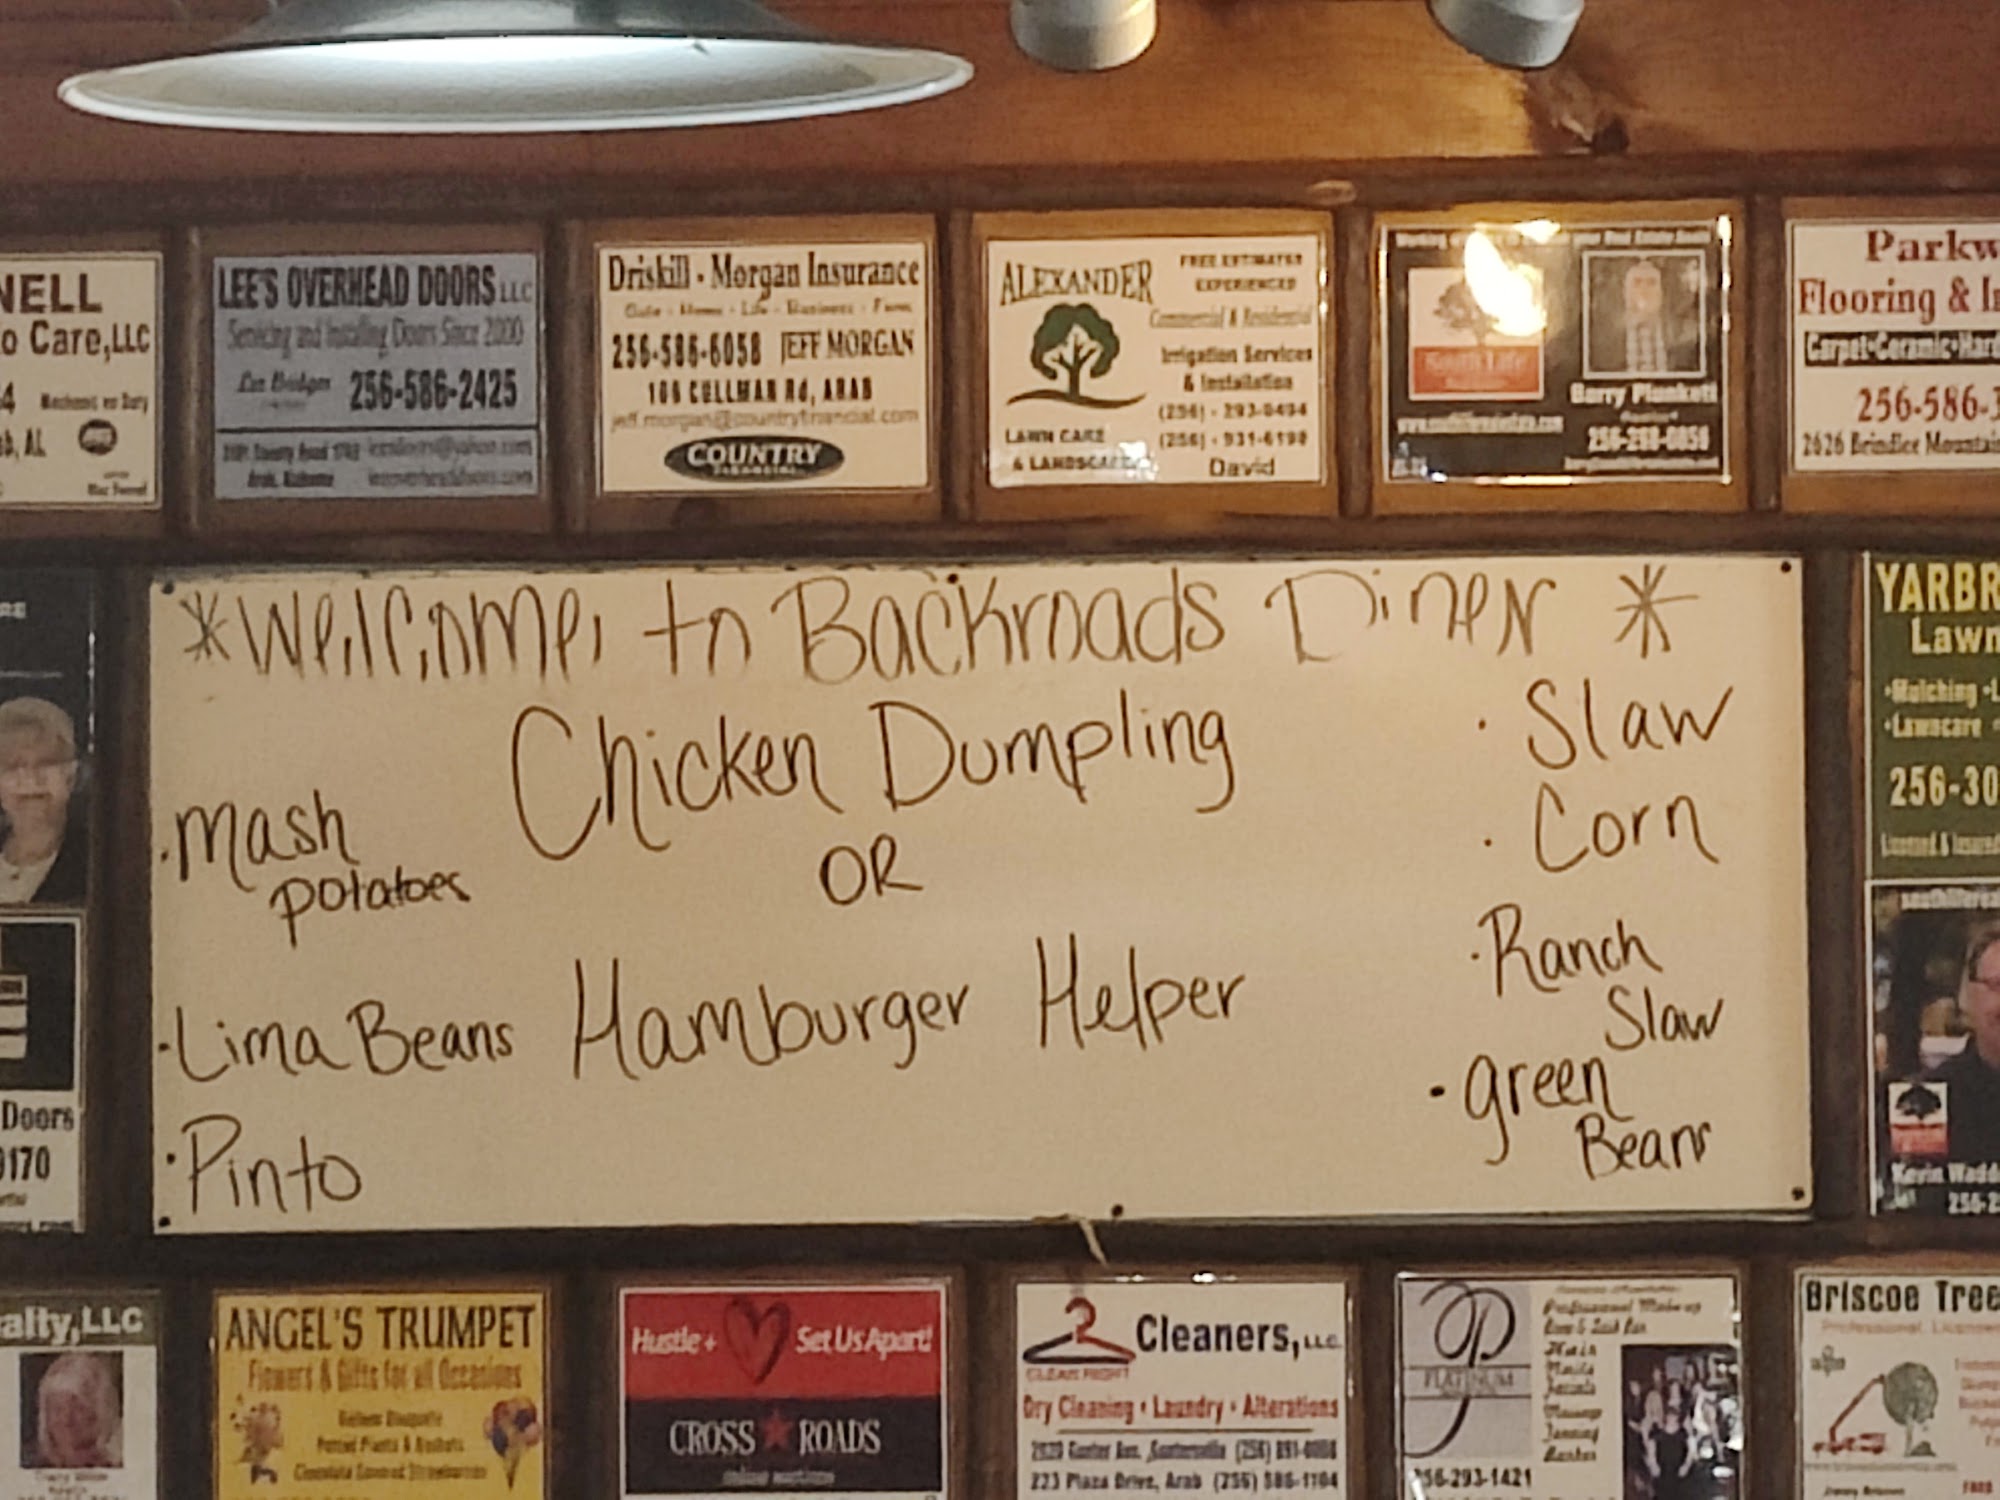 NELL
o Care, LLC
4
b, AL
LEE'S OVERHEAD DOORS LLC
Servicing and Installing Doors Since 2000
Lee Bridges 256-586-2425
Arab, Alabama
Driskill - Morgan Insurance
Home - Life - Business - Farm
256-586-6058 JEFF MORGAN
CULLMAN Rd, ARAB
jeff.morgan@countryfinancial.com
COUNTRY
FINANCIAL
ALEXANDER
FREE ESTIMATES
EXPERIENCED
Commercial & Residential
Irrigation Services
& Installation
(256) - 293-0494
(256) - 931-6190
David
LAWN CARE
& LANDSCA
Barry Plunkett
Parkw
Flooring & In
Carpet•Ceramic•Hard
256-586-3
2626 Brindlee Mountai
*Welcome to Backroads Diner *
Chicken Dumpling
OR
Hamburger Helper
· Mash
potatoes
· Lima Beans
· Pinto
· Slaw
· Corn
· Ranch
Slaw
· green
Beans
YARBR
Lawn
•Mulching •L
•Lawncare
256-30
Licensed & Insured
Kevin Wadd
256-2
Doors
9170
alty, LLC
ANGEL'S TRUMPET
Flowers & Gifts for all Occasions
Balloon Bouquets
Potted Plants & Baskets
Chocolate Covered Strawberries
Hustle + Set Us Apart!
CROSS ROADS
online auctions
Cleaners, LLC.
CLEAN RIGHT
Dry Cleaning • Laundry • Alterations
Gunter Ave., Guntersville (256)
223 Plaza Drive, Arab (256) 586-1104
PLATINUM
Professional Make-up
Hair
Nails
Facials
Massage
Tanning
Barber
256-293-1421
Briscoe Tree